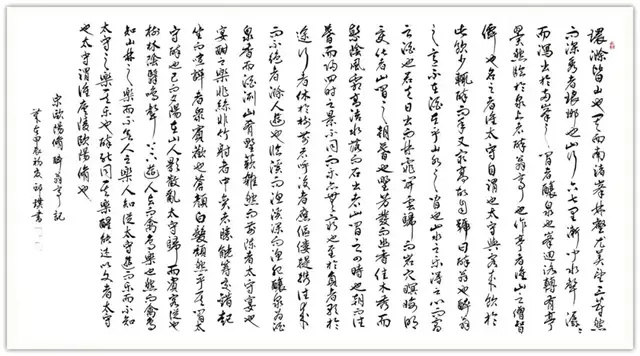 環滁皆山也其西南諸峯林壑尤美望之蔚然
而深秀者琅琊也山行六七里漸聞水聲潺潺
而瀉出於兩峯之間者釀泉也峯迴路轉有亭
翼然臨於泉上者醉翁亭也作亭者誰山之僧智
僊也名之者誰太守自謂也太守與客來飲於
此飲少輒醉而年又最高故自號曰醉翁也醉翁
之意不在酒在乎山水之間也山水之樂得之心而寓
之酒也若夫日出而林霏開雲歸而岩穴暝晦明
變化者山間之朝暮也野芳發而幽香佳木秀而
繁陰風霜高潔水落而石出者山間之四時也朝而往
暮而歸四時之景不同而樂亦無窮也至於負者歌於
途行者休於樹前者呼後者應傴僂提攜往來
而不絕者滁人遊也臨溪而漁溪深而魚肥釀泉為酒
泉香而酒洌山肴野蔌雜然而前陳者太守宴也
宴酣之樂非絲非竹射者中弈者勝觥籌交錯起
坐而喧譁者眾賓歡也蒼顏白髮頹然乎其間者太
守醉也已而夕陽在山人影散亂太守歸而賓客從也
樹林陰翳鳴聲上下遊人去而禽鳥樂也然而禽鳥
知山林之樂而不知人之樂人知從太守遊而樂而不知
太守之樂其樂也醉能同其樂醒能述以文者太守
也太守謂誰廬陵歐陽脩也
宋歐陽脩醉翁亭記